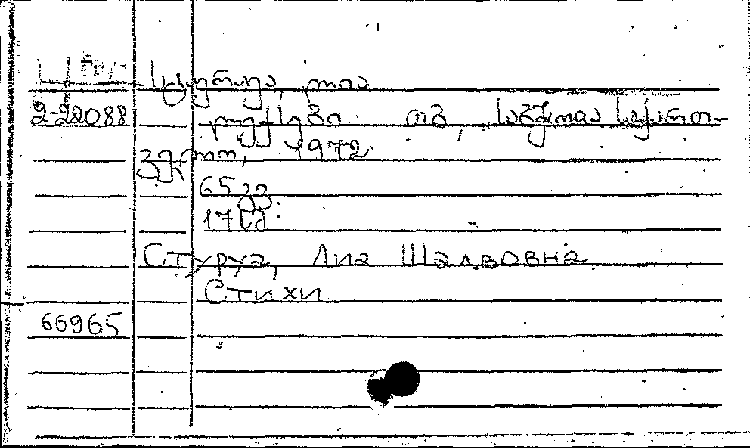 სტურუა, ლია
2-22088 ლექსები თბ, საბჭოთა საქართ-
ველო, 1972.
65 გვ.
17 სმ.
Стуруа, Лиа Шалвовна
Стихи
66965